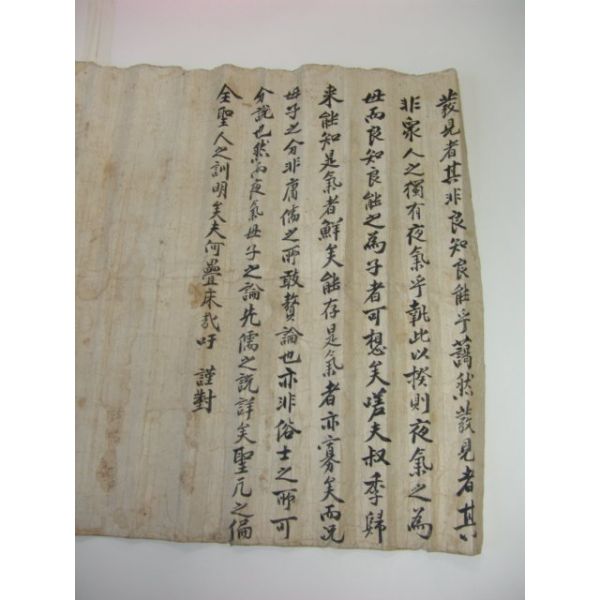 發見者其非良知良能乎藹然發見者其
非衆人之獨有夜氣乎執此以揆則夜氣之爲
母而良知良能之爲子者可想矣嗟夫叔季歸
来能知是氣者鮮矣能存是氣者亦寡矣而况
母子之分非庸儒之所敢贅論也亦非俗士之所可
分說也然而夜氣母子之論先儒之說詳矣聖凡之偏
全聖人之訓明矣夫何疊床哉吁 謹對